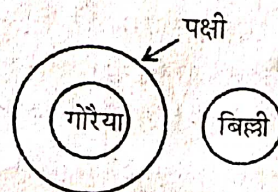 पक्षी
गोरैया
बिल्ली